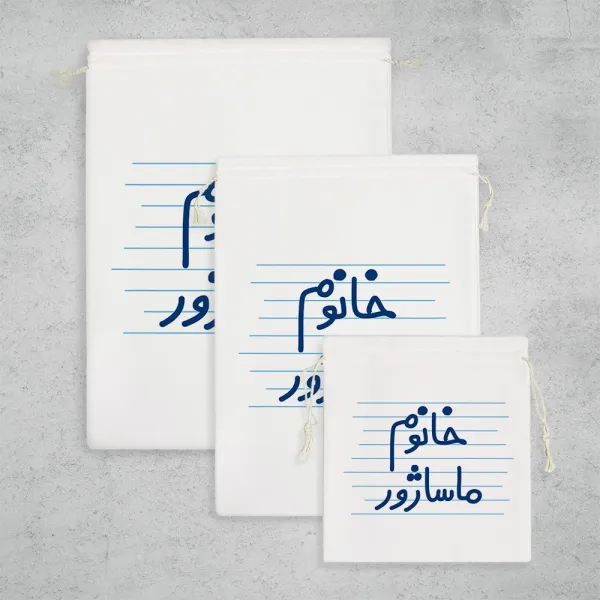 خانوم
خانوم
ماساژور